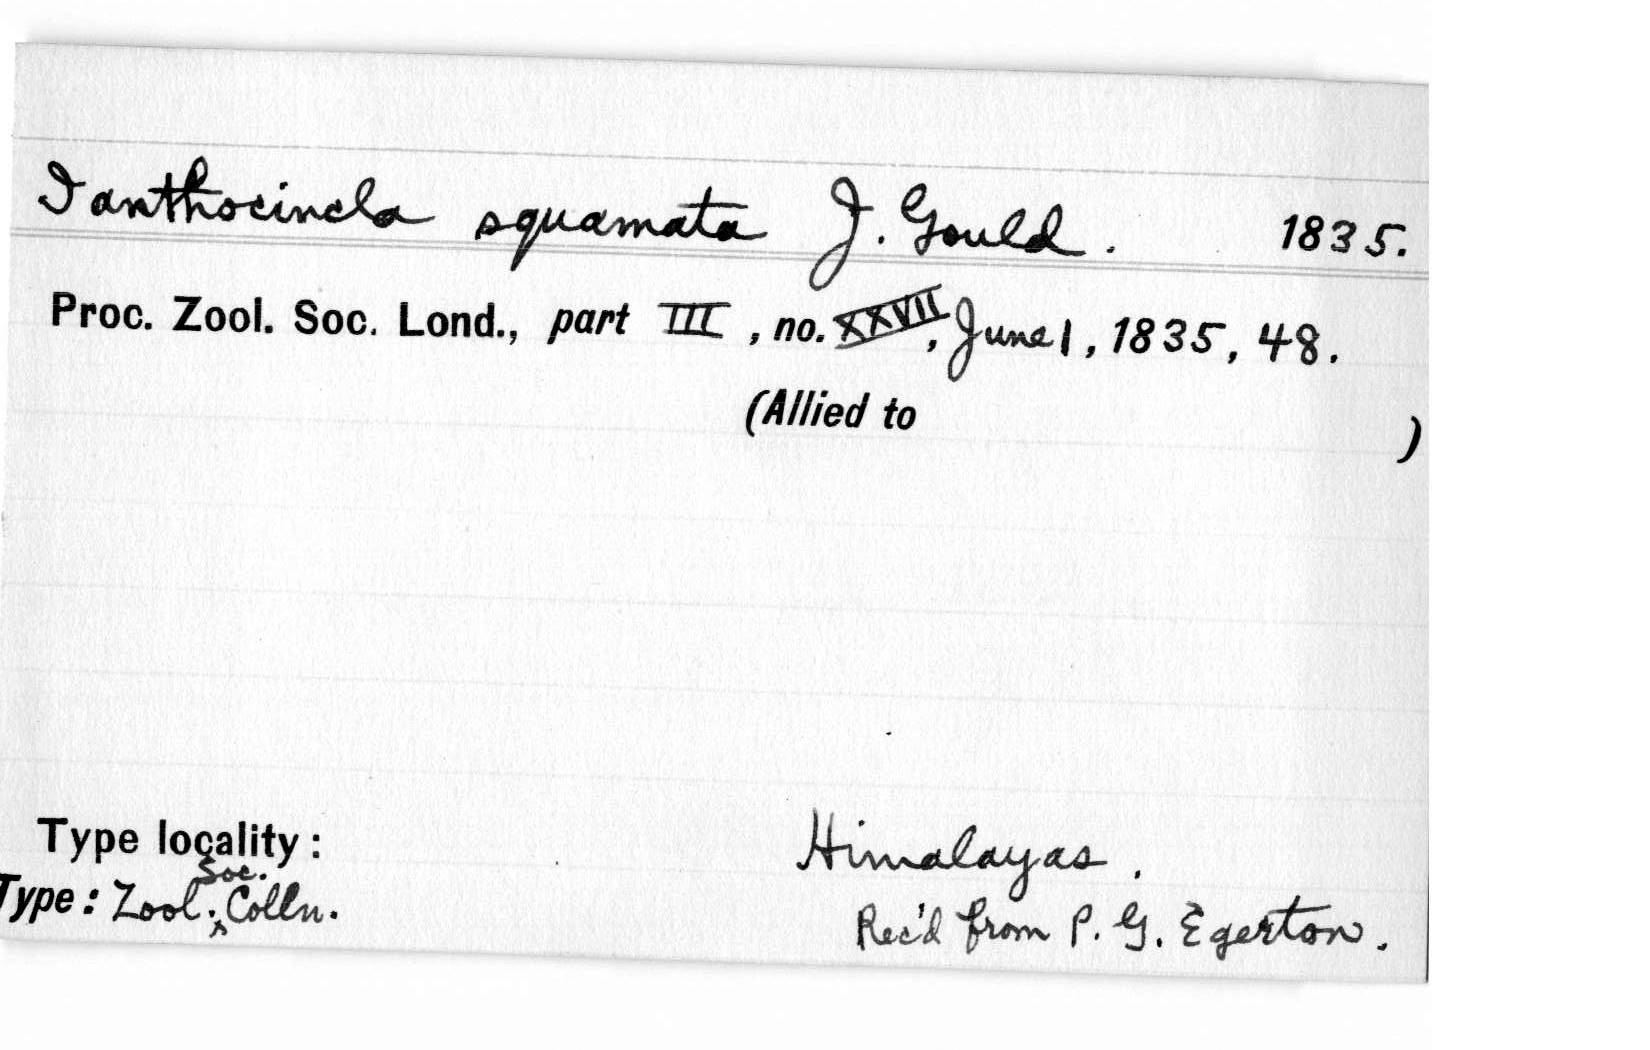 Ianthocincla squamata J. Gould. 1835.
Proc. Zool. Soc. Lond., part III, no. XXVII, June 1, 1835, 48.
(Allied to )
Type locality: Himalayas.
Type: Zool. Soc. Colln. Rec'd from P. G. Egerton.